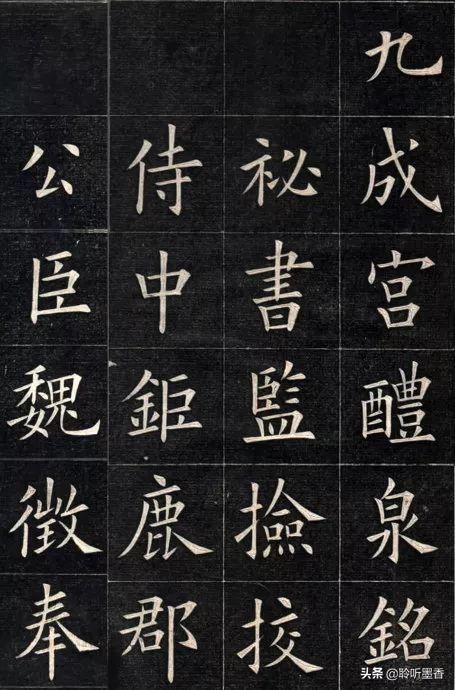 九成宮醴泉銘
祕書監撿挍
侍中鉅鹿郡
公臣魏徵奉
头条 @聆听墨香